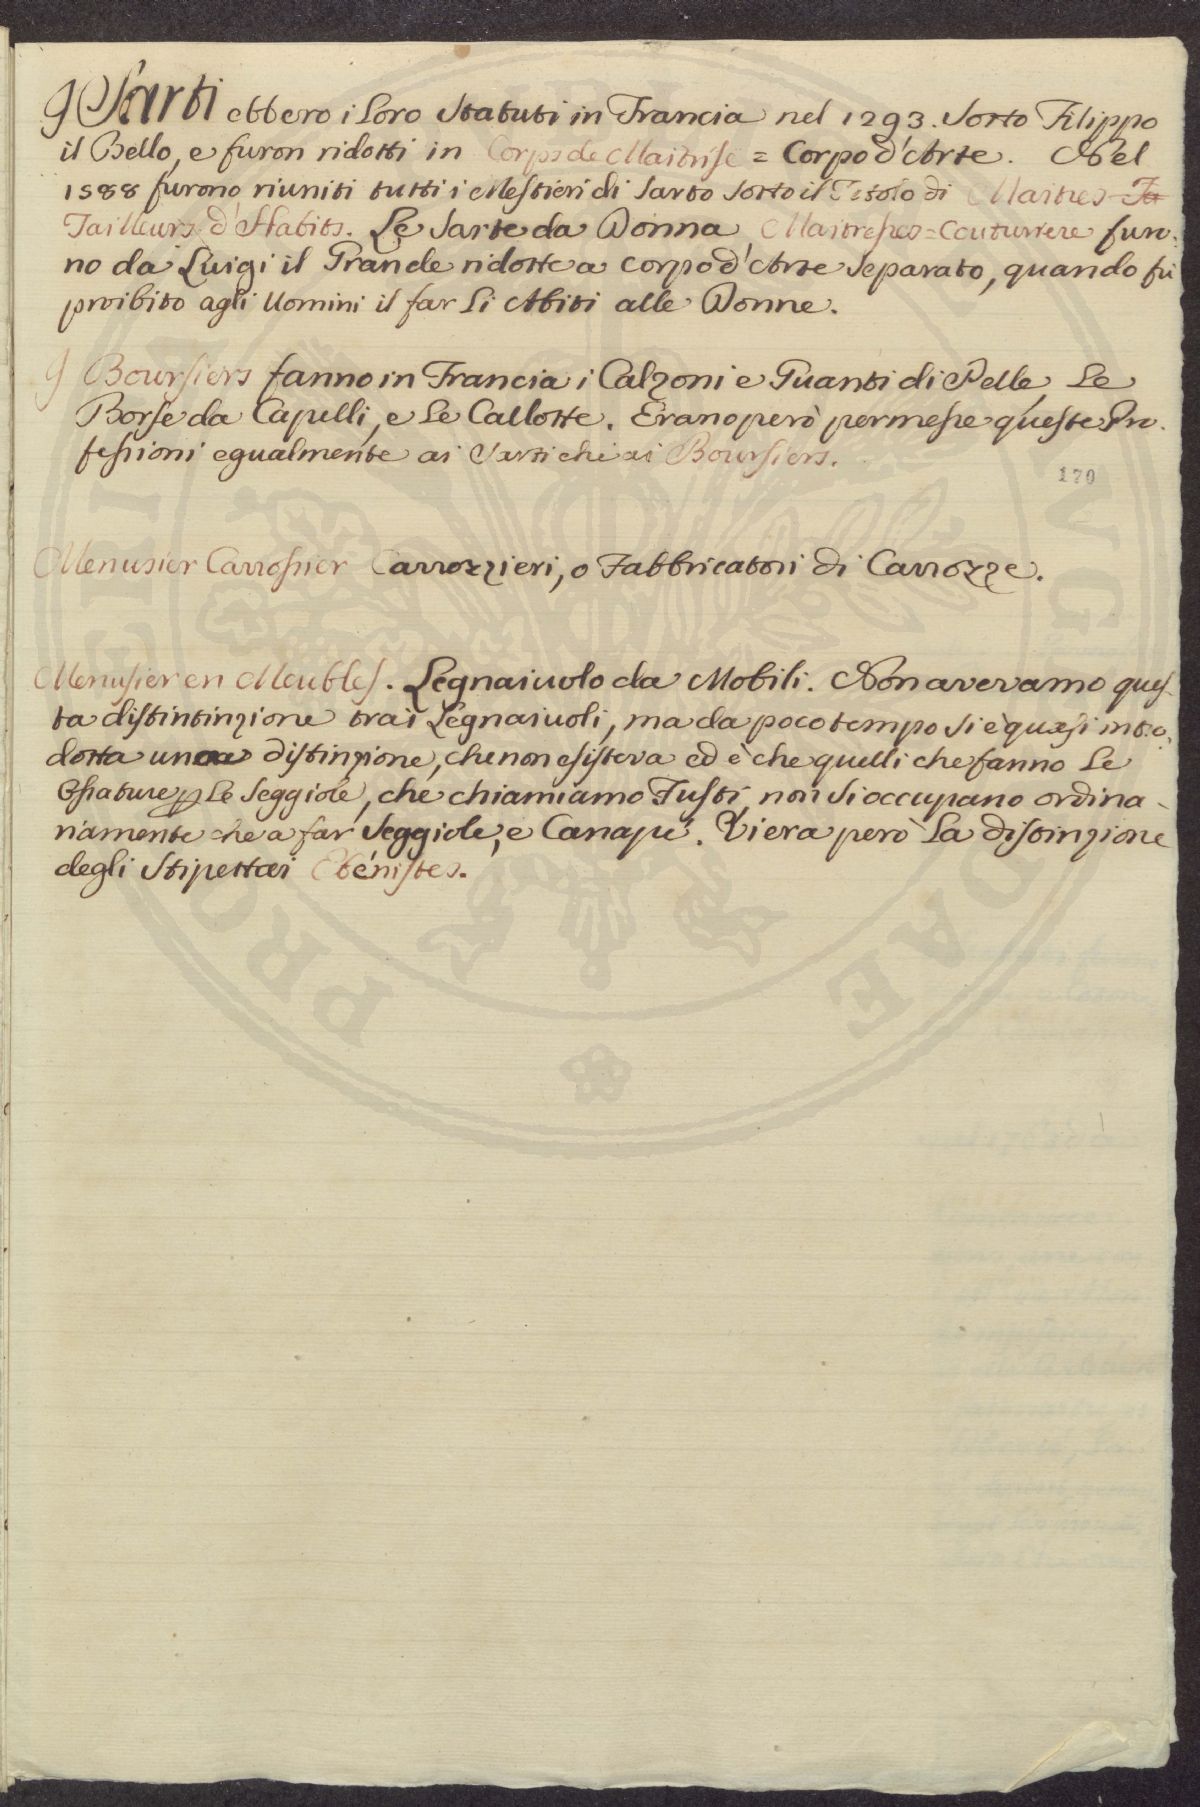 I Sarti ebbero i Loro Statuti in Francia nel 1293. Sotto Filippo
il Bello, e furon ridotti in Corps de Maitrise = Corpo d'Arte. Nel
1588 furono riuniti tutti i Mestieri di Sarto Sotto il Titolo di Maitres-Ta
Tailleurs d'Habits. Le Sarte da Donna Maitresses=Couturiere furo:
no da Luigi il Grande ridotte a corpo d'Arte Separato, quando fù
proibito agli Uomini il far Li Abiti alle Donne.
I Boursiers fanno in Francia i Calzoni e Guanti di Pelle, Le
Borse da Capelli, e Le Callotte. Erano però permesse queste Pro:
fessioni egualmente ai Sarti che ai Boursiers.
170
Menusier Carrossier Carrozzieri, o Fabbricatori di Carrozze.
Menusier en Meubles. Legnaiuolo da Mobili. Non avevamo ques-
ta distintinzione trai Legnaiuoli, ma da poco tempo si è quasi intro:
dotta una distinzione, che non esisteva ed è che quelli che fanno Le
Ossature p Le Seggiole, che chiamiamo Fusti, non Si occupano ordina-
riamente che a far Seggiole, e Canapè. Vi era però La distinzione
degli Stipettai Ebénistes.
PRO DAE